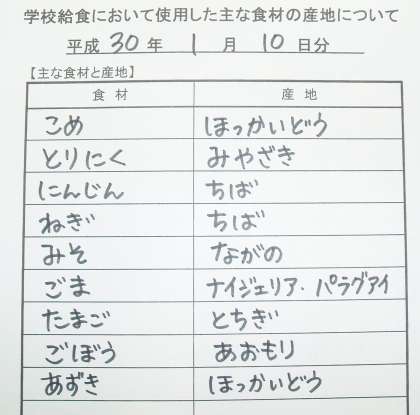 学校給食において使用した主な食材の産地について
平成 30 年 1 月 10 日分
【主な食材と産地】
食材 産地
こめ ほっかいどう
とりにく みやざき
にんじん ちば
ねぎ ちば
みそ ながの
ごま ナイジェリア・パラグアイ
たまご とちぎ
ごぼう あおもり
あずき ほっかいどう